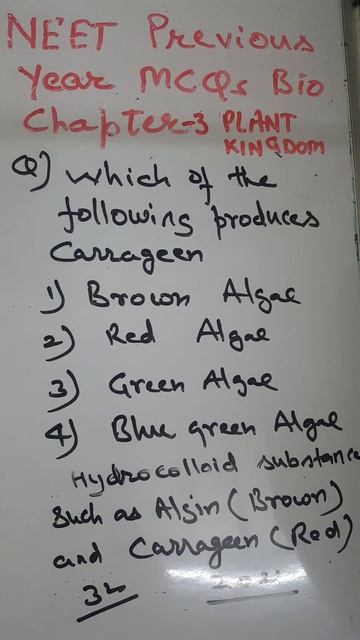 NEET Previous
Year MCQs Bio
Chapter-3 PLANT
KINGDOM
Q) which of the
following produces
Carrageen
1) Brown Algae
2) Red Algae
3) Green Algae
4) Blue green Algae
Hydrocolloid substance
such as Algin (Brown)
and Carrageen (Red)
32